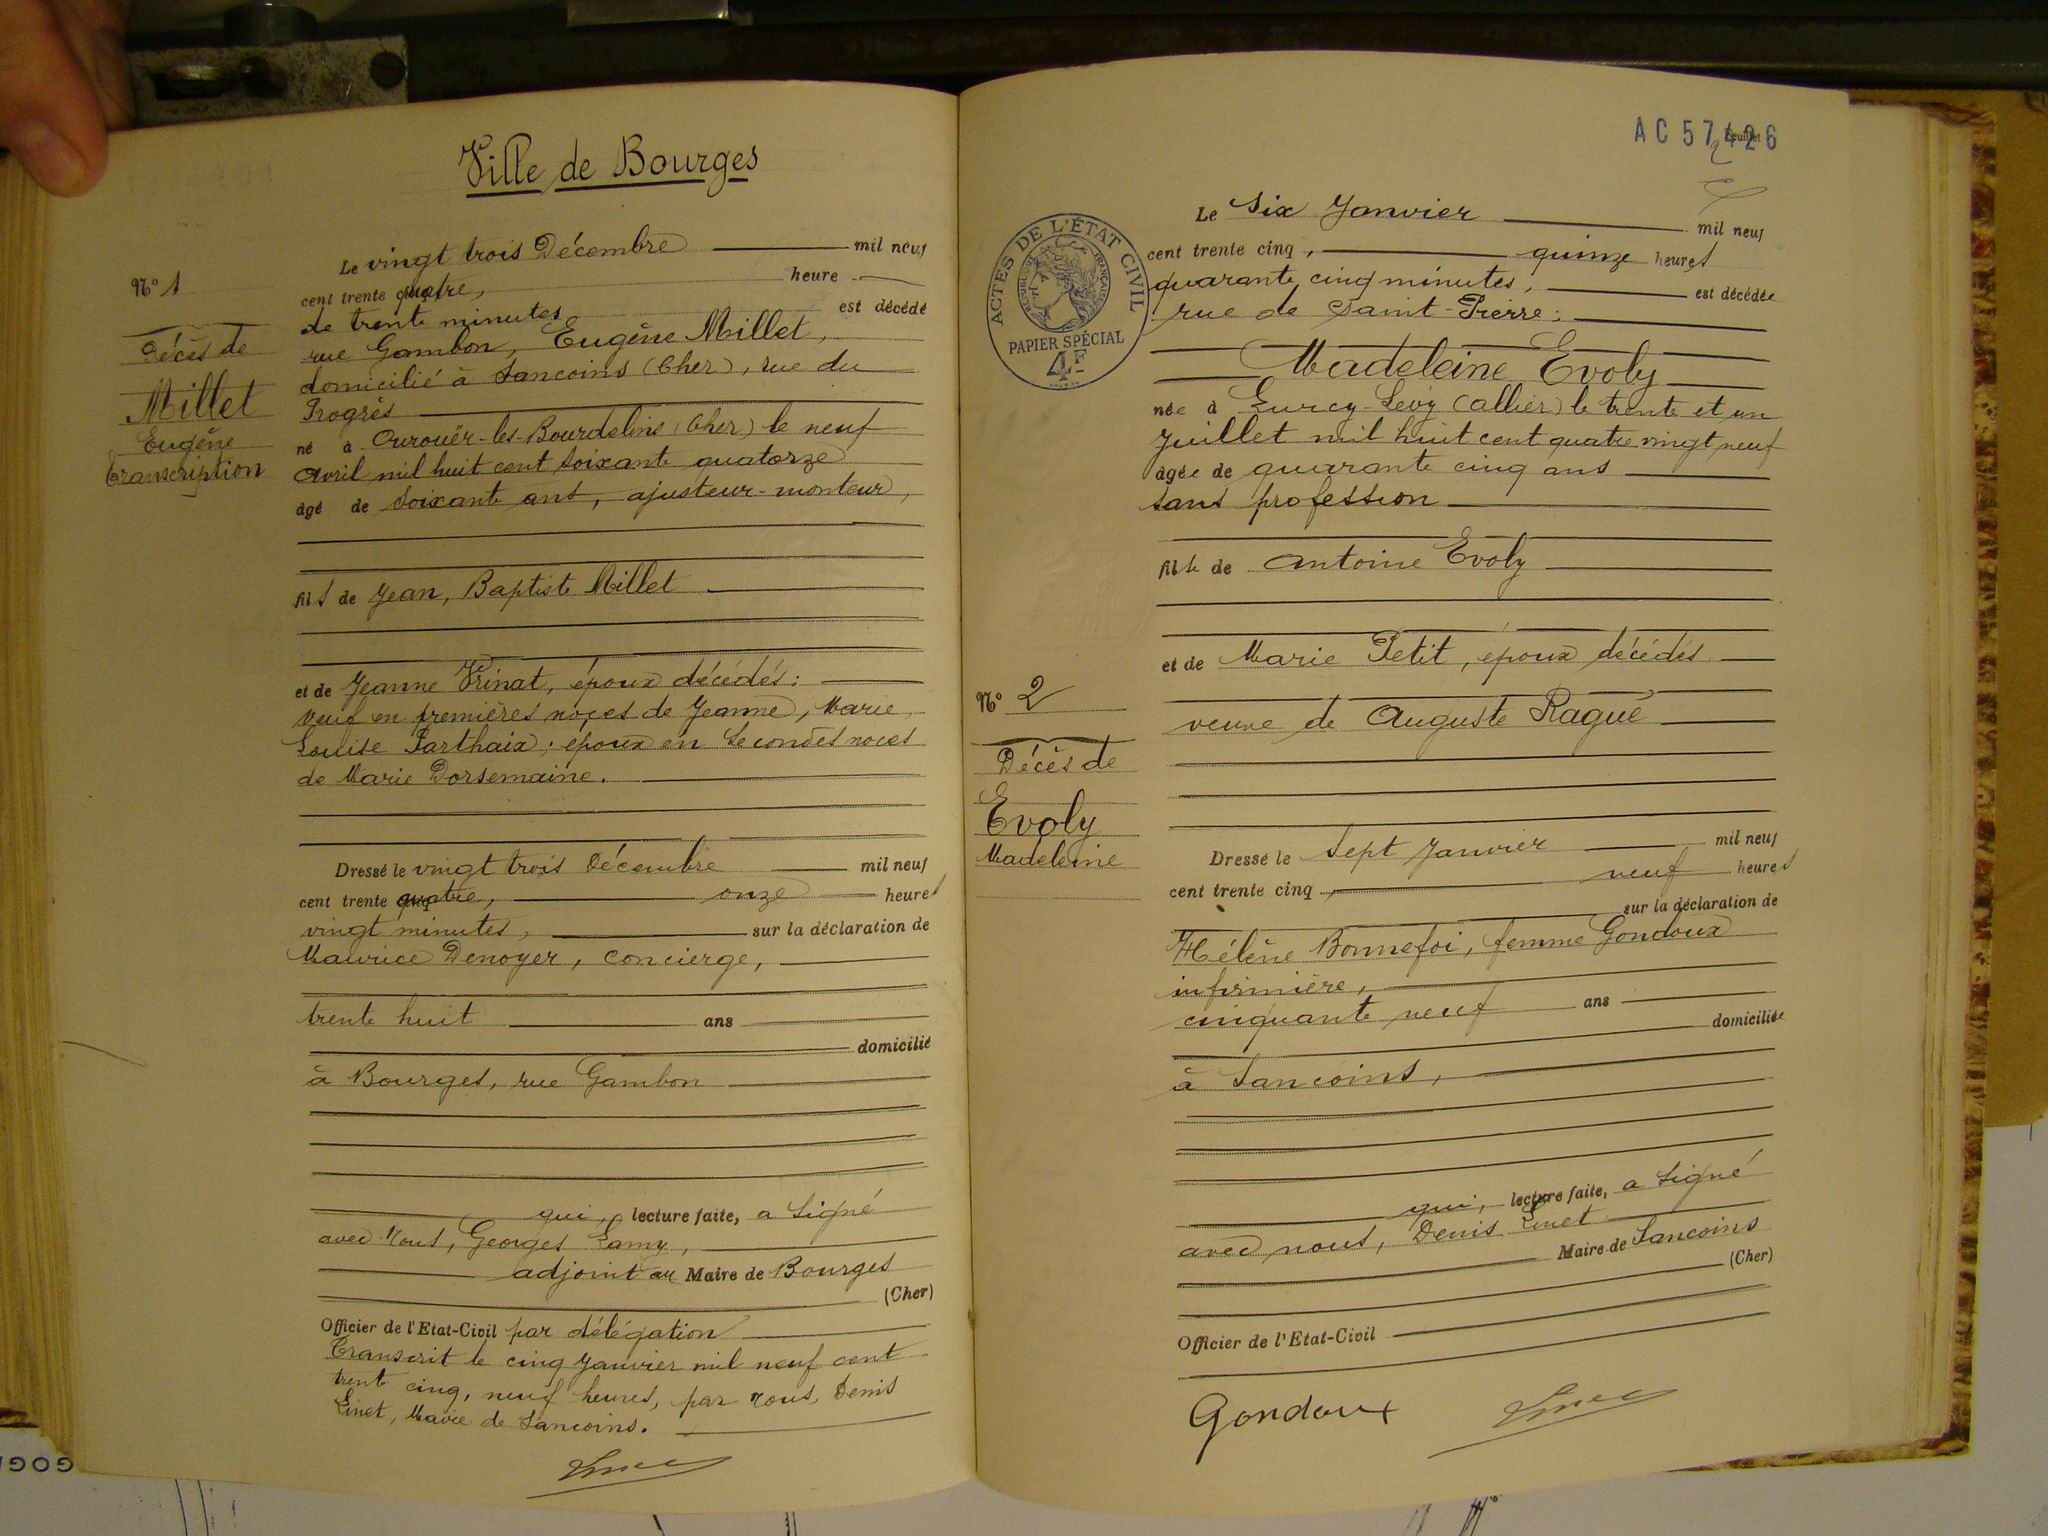 Ville de Bourges
N° 1
Décès de
Millet
Eugène
Transcription
Le vingt trois Décembre mil neuf
cent trente quatre, heure
de trente minutes est décédé
rue Gambon, Eugène Millet,
domicilié à Sancoins (Cher), rue du
Progrès
né à Ourouër-les-Bourdelins (Cher) le neuf
Avril mil huit cent soixante quatorze
âgé de soixante ans, ajusteur-monteur,
fils de Jean, Baptiste Millet
et de Jeanne Vrinat, époux décédés:
Veuf en premières noces de Jeanne, Marie,
Louise Parthaix; époux en secondes noces
de Marie Dorsemaine.
Dressé le vingt trois Décembre mil neuf
cent trente quatre, onze heures
vingt minutes, sur la déclaration de
Maurice Denoyer, concierge,
trente huit ans
domicilié
à Bourges, rue Gambon
qui, lecture faite, a signé
avec Nous, Georges Lamy,
adjoint au Maire de Bourges
(Cher)
Officier de l'Etat-Civil par délégation
Transcrit le cinq Janvier mil neuf cent
trente cinq, neuf heures, par Nous, Denis
Linet, Maire de Sancoins.
AC 57426
Feuillet
2
ACTES DE L'ÉTAT CIVIL
RÉPUBLIQUE FRANÇAISE
PAPIER SPÉCIAL
4F
N° 2
Décès de
Evoly
Madeleine
Le Six Janvier mil neuf
cent trente cinq, quinze heures
quarante cinq minutes, est décédée
rue de Saint-Pierre:
Madeleine Evoly
née à Lurcy-Lévy (Allier) le trente et un
Juillet mil huit cent quatre vingt neuf
âgée de quarante cinq ans
sans profession
fille de Antoine Evoly
et de Marie Petit, époux décédés
veuve de Auguste Ragué
Dressé le sept Janvier mil neuf
cent trente cinq, neuf heures
sur la déclaration de
Hélène Bonnefoi, femme Gondoux
infirmière,
cinquante neuf ans
domiciliée
à Sancoins,
qui, lecture faite, a signé
avec nous, Denis Linet
Maire de Sancoins
(Cher)
Officier de l'Etat-Civil
Gondoux